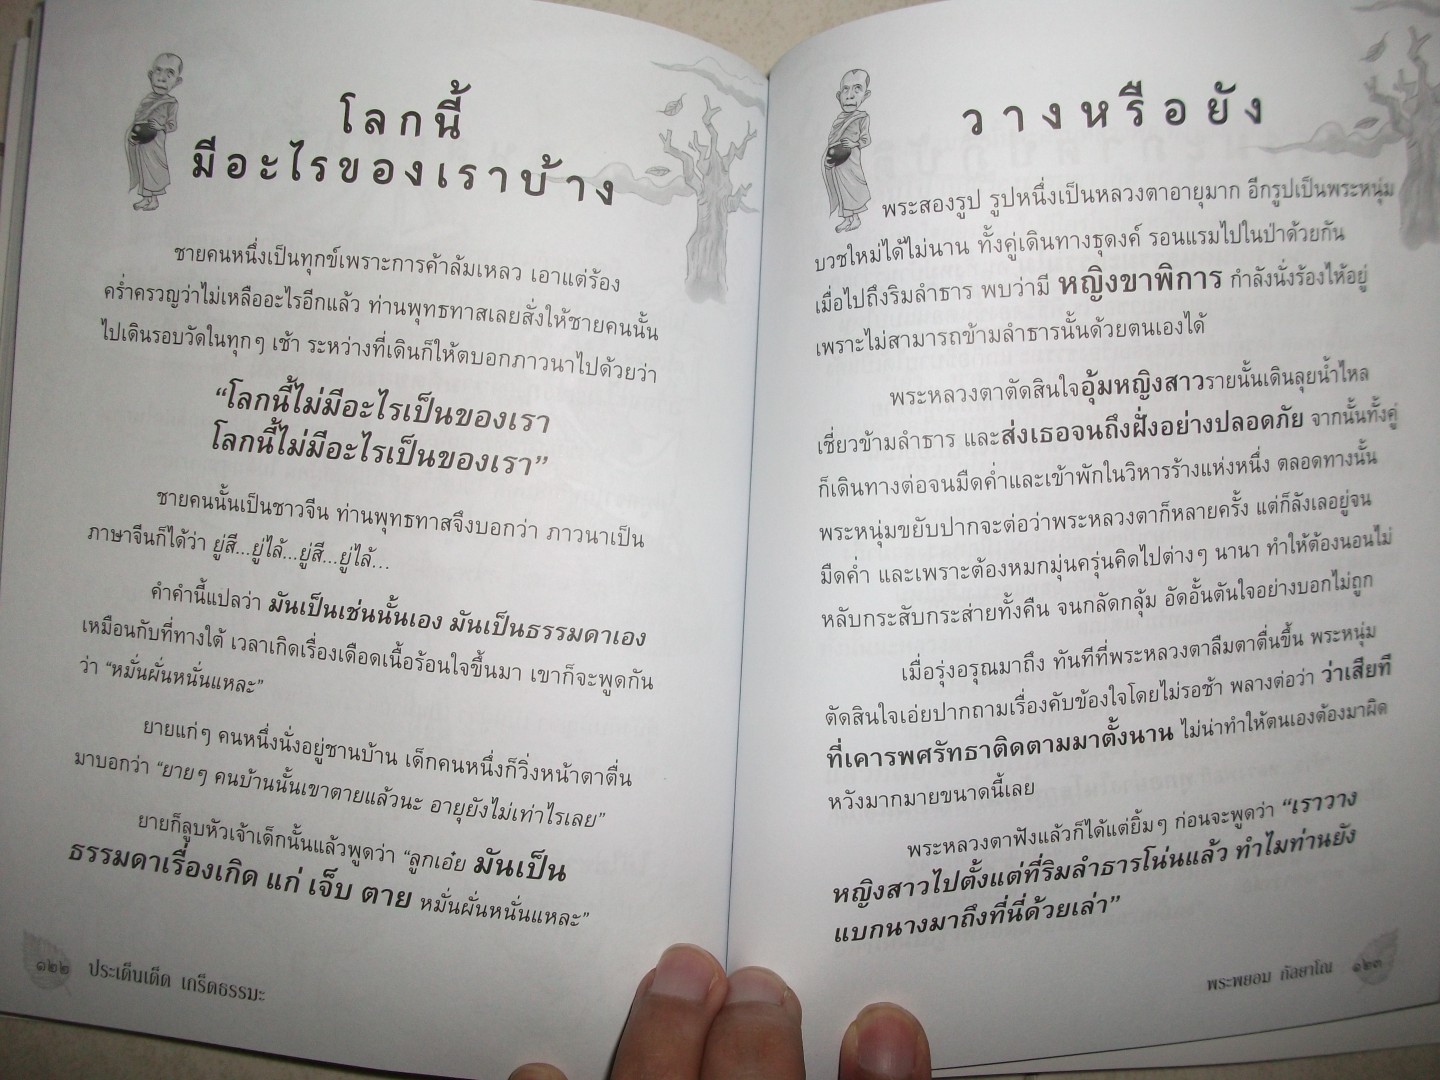 โลกนี้
มีอะไรของเราบ้าง
ชายคนหนึ่งเป็นทุกข์เพราะการค้าล้มเหลว เอาแต่ร้อง
คร่ำครวญว่าไม่เหลืออะไรอีกแล้ว ท่านพุทธทาสเลยสั่งให้ชายคนนั้น
ไปเดินรอบวัดในทุกๆ เช้า ระหว่างที่เดินก็ให้ตบอกภาวนาไปด้วยว่า
“โลกนี้ไม่มีอะไรเป็นของเรา
โลกนี้ไม่มีอะไรเป็นของเรา”
ชายคนนั้นเป็นชาวจีน ท่านพุทธทาสจึงบอกว่า ภาวนาเป็น
ภาษาจีนก็ได้ว่า ยู่สี...ยู่ไล้...ยู่สี...ยู่ไล้...
คำคำนี้แปลว่า มันเป็นเช่นนั้นเอง มันเป็นธรรมดาเอง
เหมือนกับที่ทางใต้ เวลาเกิดเรื่องเดือดเนื้อร้อนใจขึ้นมา เขาก็จะพูดกัน
ว่า “หมั่นผั่นหนั่นแหละ”
ยายแก่ๆ คนหนึ่งนั่งอยู่ชานบ้าน เด็กคนหนึ่งก็วิ่งหน้าตาตื่น
มาบอกว่า “ยายๆ คนบ้านนั้นเขาตายแล้วนะ อายุยังไม่เท่าไรเลย”
ยายก็ลูบหัวเจ้าเด็กนั้นแล้วพูดว่า “ลูกเอ๋ย มันเป็น
ธรรมดาเรื่องเกิด แก่ เจ็บ ตาย หมั่นผั่นหนั่นแหละ”
๑๒๒ ประเด็นเด็ด เกร็ดธรรมะ
วางหรือยัง
พระสองรูป รูปหนึ่งเป็นหลวงตาอายุมาก อีกรูปเป็นพระหนุ่ม
บวชใหม่ได้ไม่นาน ทั้งคู่เดินทางธุดงค์ รอนแรมไปในป่าด้วยกัน
เมื่อไปถึงริมลำธาร พบว่ามี หญิงขาพิการ กำลังนั่งร้องไห้อยู่
เพราะไม่สามารถข้ามลำธารนั้นด้วยตนเองได้
พระหลวงตาตัดสินใจอุ้มหญิงสาวรายนั้นเดินลุยน้ำไหล
เชี่ยวข้ามลำธาร และส่งเธอจนถึงฝั่งอย่างปลอดภัย จากนั้นทั้งคู่
ก็เดินทางต่อจนมืดค่ำและเข้าพักในวิหารร้างแห่งหนึ่ง ตลอดทางนั้น
พระหนุ่มขยับปากจะต่อว่าพระหลวงตาก็หลายครั้ง แต่ก็ลังเลอยู่จน
มืดค่ำ และเพราะต้องหมกมุ่นครุ่นคิดไปต่างๆ นานา ทำให้ต้องนอนไม่
หลับกระสับกระส่ายทั้งคืน จนกลัดกลุ้ม อัดอั้นตันใจอย่างบอกไม่ถูก
เมื่อรุ่งอรุณมาถึง ทันทีที่พระหลวงตาลืมตาตื่นขึ้น พระหนุ่ม
ตัดสินใจเอ่ยปากถามเรื่องคับข้องใจโดยไม่รอช้า พลางต่อว่า ว่าเสียที
ที่เคารพศรัทธาติดตามมาตั้งนาน ไม่น่าทำให้ตนเองต้องมาผิด
หวังมากมายขนาดนี้เลย
พระหลวงตาฟังแล้วก็ได้แต่ยิ้มๆ ก่อนจะพูดว่า “เราวาง
หญิงสาวไปตั้งแต่ที่ริมลำธารโน่นแล้ว ทำไมท่านยัง
แบกนางมาถึงที่นี่ด้วยเล่า”
พระพยอม กัลยาโณ ๑๒๓